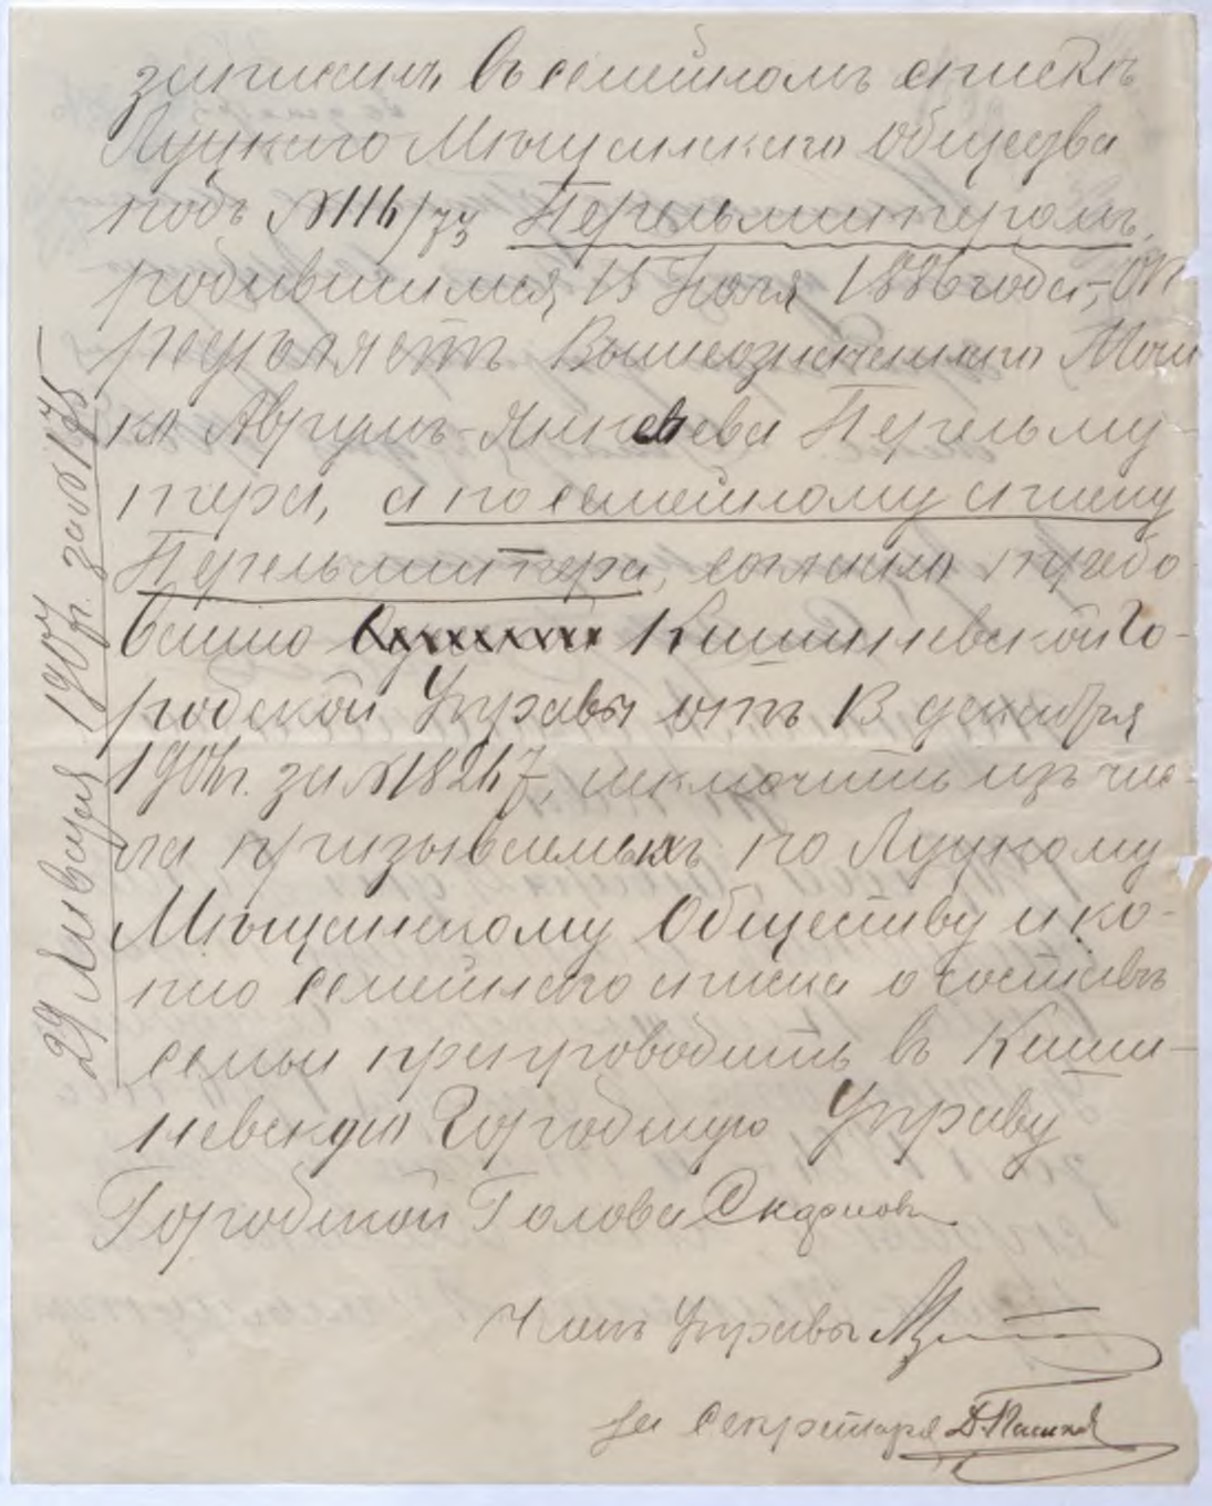 записанъ въ семейномъ спискѣ
Луцкаго Мѣщанскаго общества
подъ №116/73 Перельмитеромъ,
родившимся 15 Іюля 1886 года, оп
редѣляетъ Вышеозначеннаго Мош
ка Аврумъ-Янкевева Перельму-
тера, а по семейному списку
Перельмитера, согласно требо-
ванію Кишиневской Го-
родской Управы отъ 13 декабря
1906г. за №18247, исключить изъ чис-
ла призываемыхъ по Луцкому
Мѣщанскому Обществу и ко-
пію семейнаго списка о составѣ
семьи препроводить въ Киши-
невскую Городскую Управу
Городской Голова
Членъ Управы
За Секретаря
29 Января 1907г. за №175